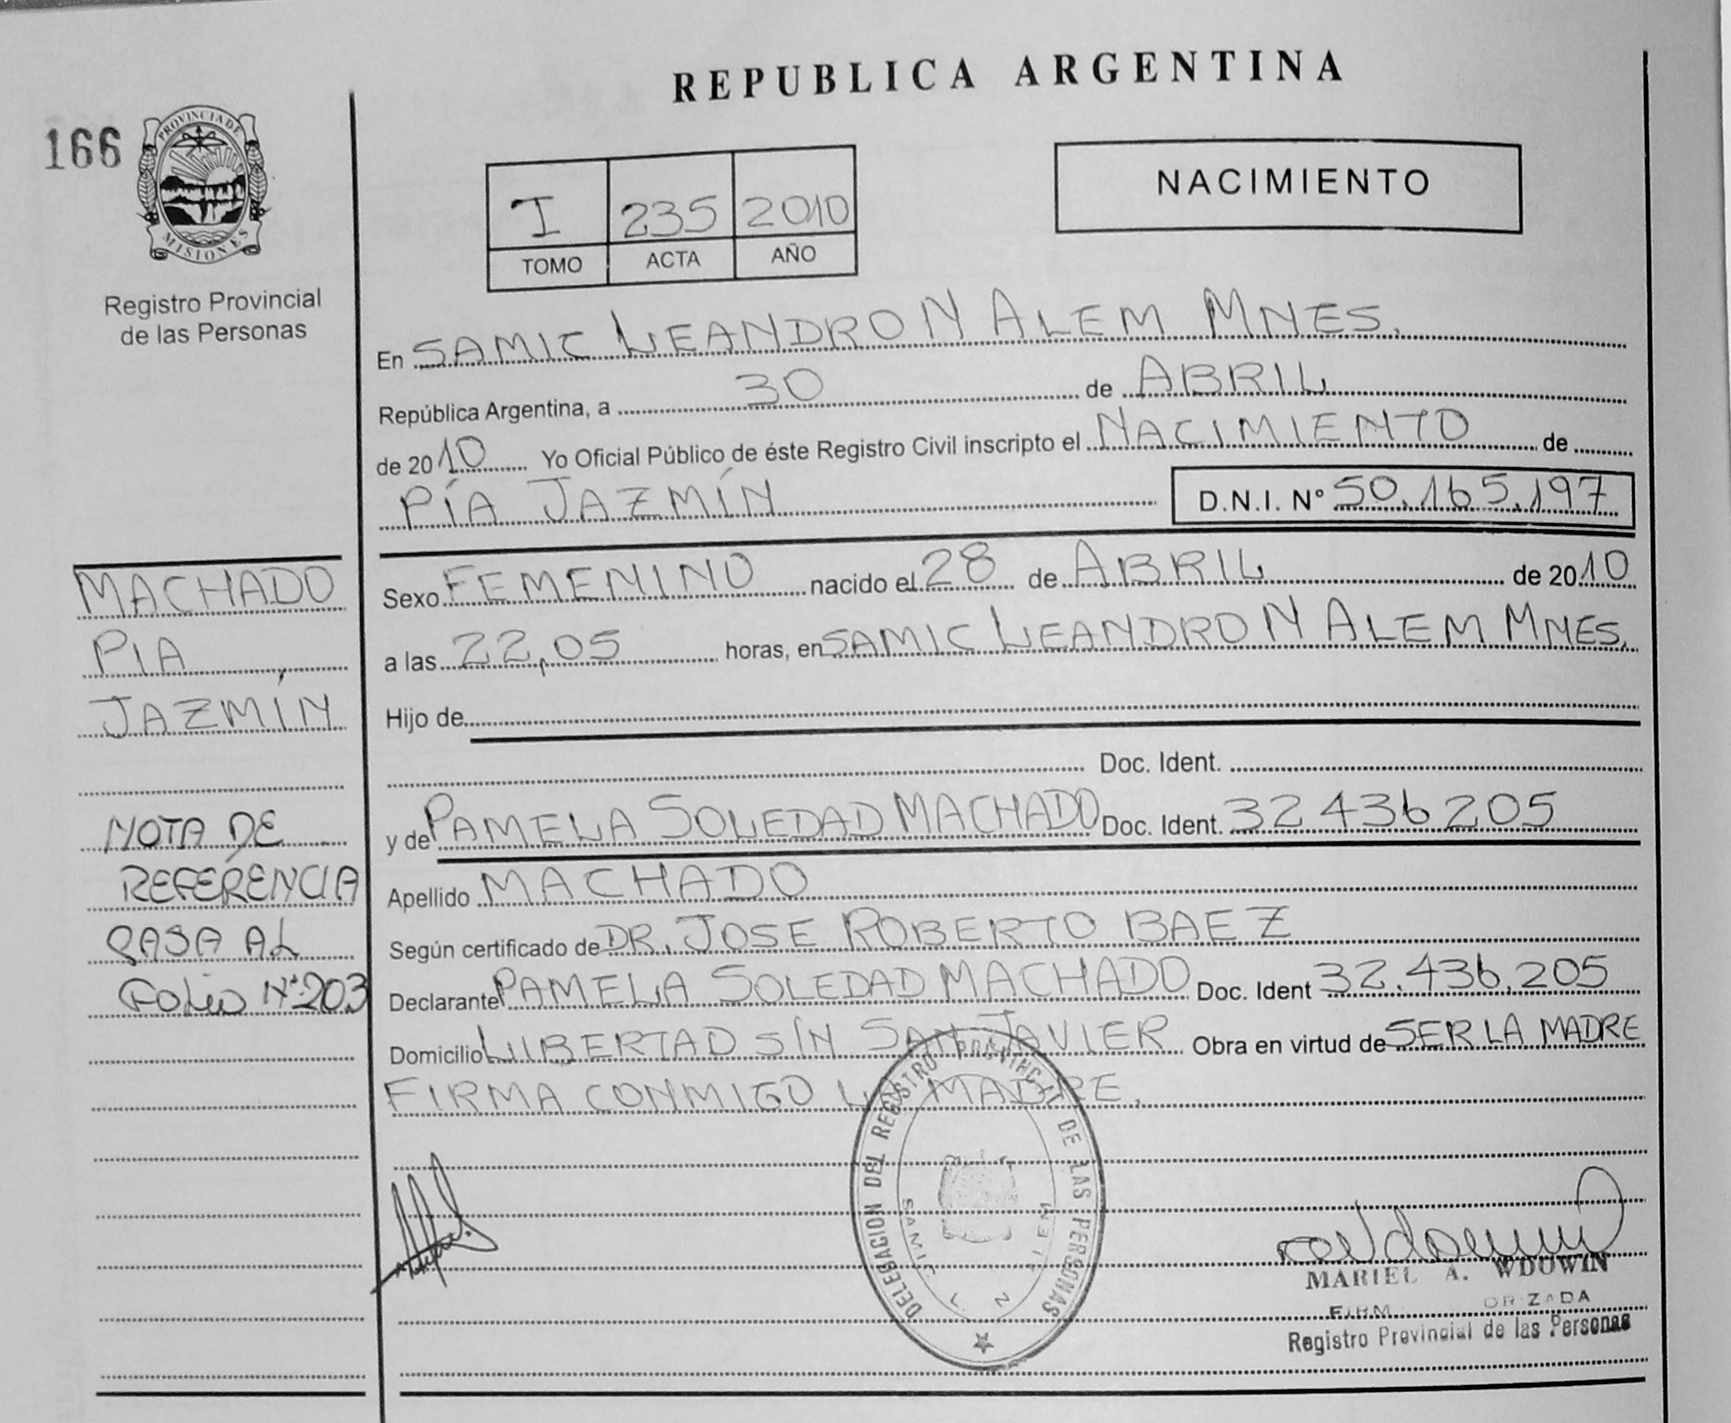 REPUBLICA ARGENTINA
166
PROVINCIA DE
MISIONES
Registro Provincial
de las Personas
I 235 2010
TOMO ACTA AÑO
NACIMIENTO
En SAMIC LEANDRO N ALEM MNES.
República Argentina, a 30 de ABRIL
de 2010 Yo Oficial Público de éste Registro Civil inscripto el NACIMIENTO de
PÍA JAZMÍN D.N.I. Nº 50.165.197
MACHADO
PIA
JAZMÍN
NOTA DE
REFERENCIA
PASA AL
FOLIO Nº 203
Sexo FEMENINO nacido el 28 de ABRIL de 2010
a las 22,05 horas, en SAMIC LEANDRO N ALEM MNES.
Hijo de
Doc. Ident.
y de PAMELA SOLEDAD MACHADO Doc. Ident. 32 436 205
Apellido MACHADO
Según certificado de DR. JOSE ROBERTO BAEZ
Declarante PAMELA SOLEDAD MACHADO Doc. Ident 32.436.205
Domicilio LIBERTAD S/N SAN JAVIER Obra en virtud de SER LA MADRE
FIRMA CONMIGO LA MADRE.
DELEGACION DEL REGISTRO PROVINCIAL DE LAS PERSONAS
SAMIC L. N ALEM
MARIEL A. WDOWIN
Registro Provincial de las Personas